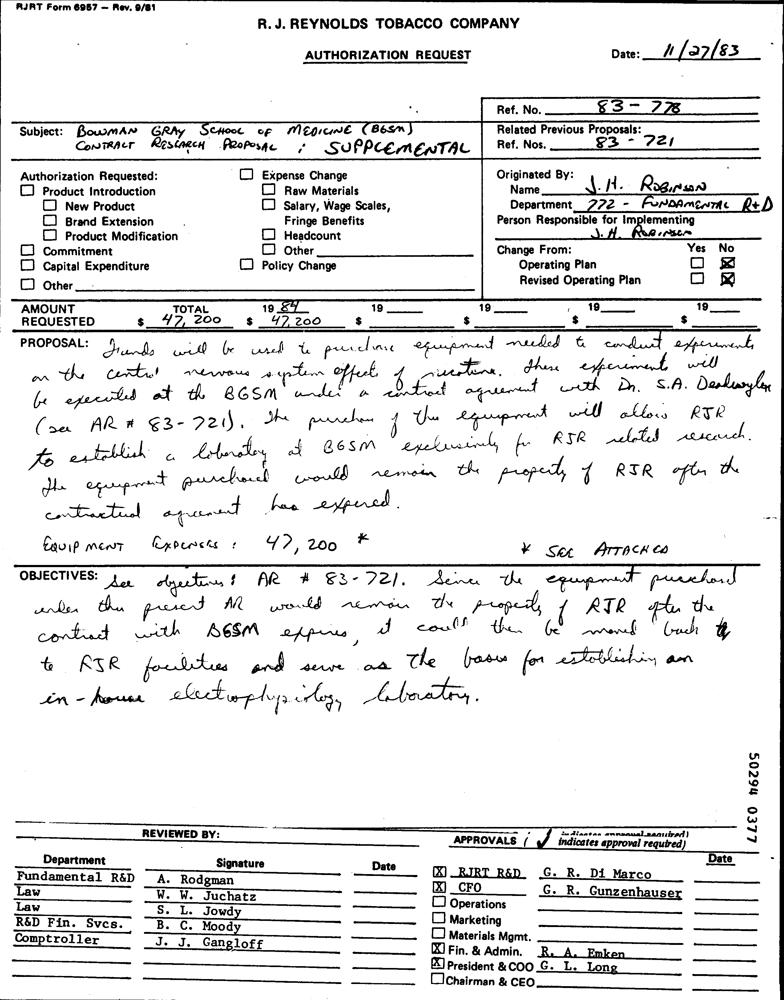 RJRT Form 6957 — Rev. 9/81
R. J. REYNOLDS TOBACCO COMPANY
AUTHORIZATION REQUEST
Date: 11/27/83
Ref. No. 83 - 778
Subject: BOWMAN GRAY SCHOOL OF MEDICINE (BGSM)
CONTRACT RESEARCH PROPOSAL ; SUPPLEMENTAL
Related Previous Proposals:
Ref. Nos. 83 - 721
Authorization Requested:
☐ Product Introduction
☐ New Product
☐ Brand Extension
☐ Product Modification
☐ Commitment
☐ Capital Expenditure
☐ Other
☐ Expense Change
☐ Raw Materials
☐ Salary, Wage Scales,
Fringe Benefits
☐ Headcount
☐ Other
☐ Policy Change
Originated By:
Name J. H. ROBINSON
Department 772 - FUNDAMENTAL R+D
Person Responsible for Implementing
J. H. ROBINSON
Change From: Yes No
Operating Plan ☐ ☒
Revised Operating Plan ☐ ☒
AMOUNT REQUESTED TOTAL $ 47,200 1984 $ 47,200 19 $ 19 $ 19 $ 19 $
PROPOSAL: Funds will be used to purchase equipment needed to conduct experiments
on the central nervous system effects of nicotine. These experiments will
be executed at the BGSM under a contract agreement with Dr. S.A. Deadwyler
(see AR # 83-721). The purchase of the equipment will allow RJR
to establish a laboratory at BGSM exclusively for RJR related research.
The equipment purchased would remain the property of RJR after the
contractual agreement has expired.
EQUIPMENT EXPENSES : 47,200 * * SEE ATTACHED
OBJECTIVES: See objectives: AR # 83-721. Since the equipment purchased
under this present AR would remain the property of RJR after the
contract with BGSM expires, it could then be moved back to
to RJR facilities and serve as the basis for establishing an
in-house electrophysiology laboratory.
50294 0377
REVIEWED BY:
Department Signature Date
Fundamental R&D A. Rodgman
Law W. W. Juchatz
Law S. L. Jowdy
R&D Fin. Svcs. B. C. Moody
Comptroller J. J. Gangloff
APPROVALS ( ✓ indicates approval required)
Date
☒ RJRT R&D G. R. Di Marco
☒ CFO G. R. Gunzenhauser
☐ Operations
☐ Marketing
☐ Materials Mgmt.
☒ Fin. & Admin. R. A. Emken
☒ President & COO G. L. Long
☐ Chairman & CEO